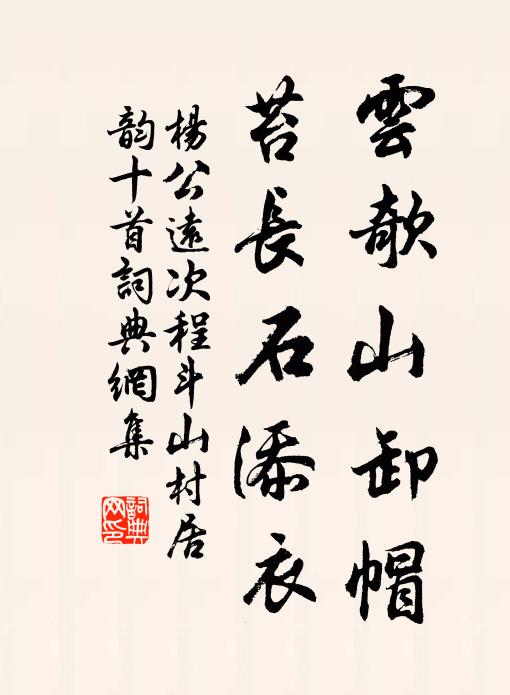 雲欹山卸帽
苔長石添衣
楊公遠次程斗山村居
韵十首詞典網集
詞典網印